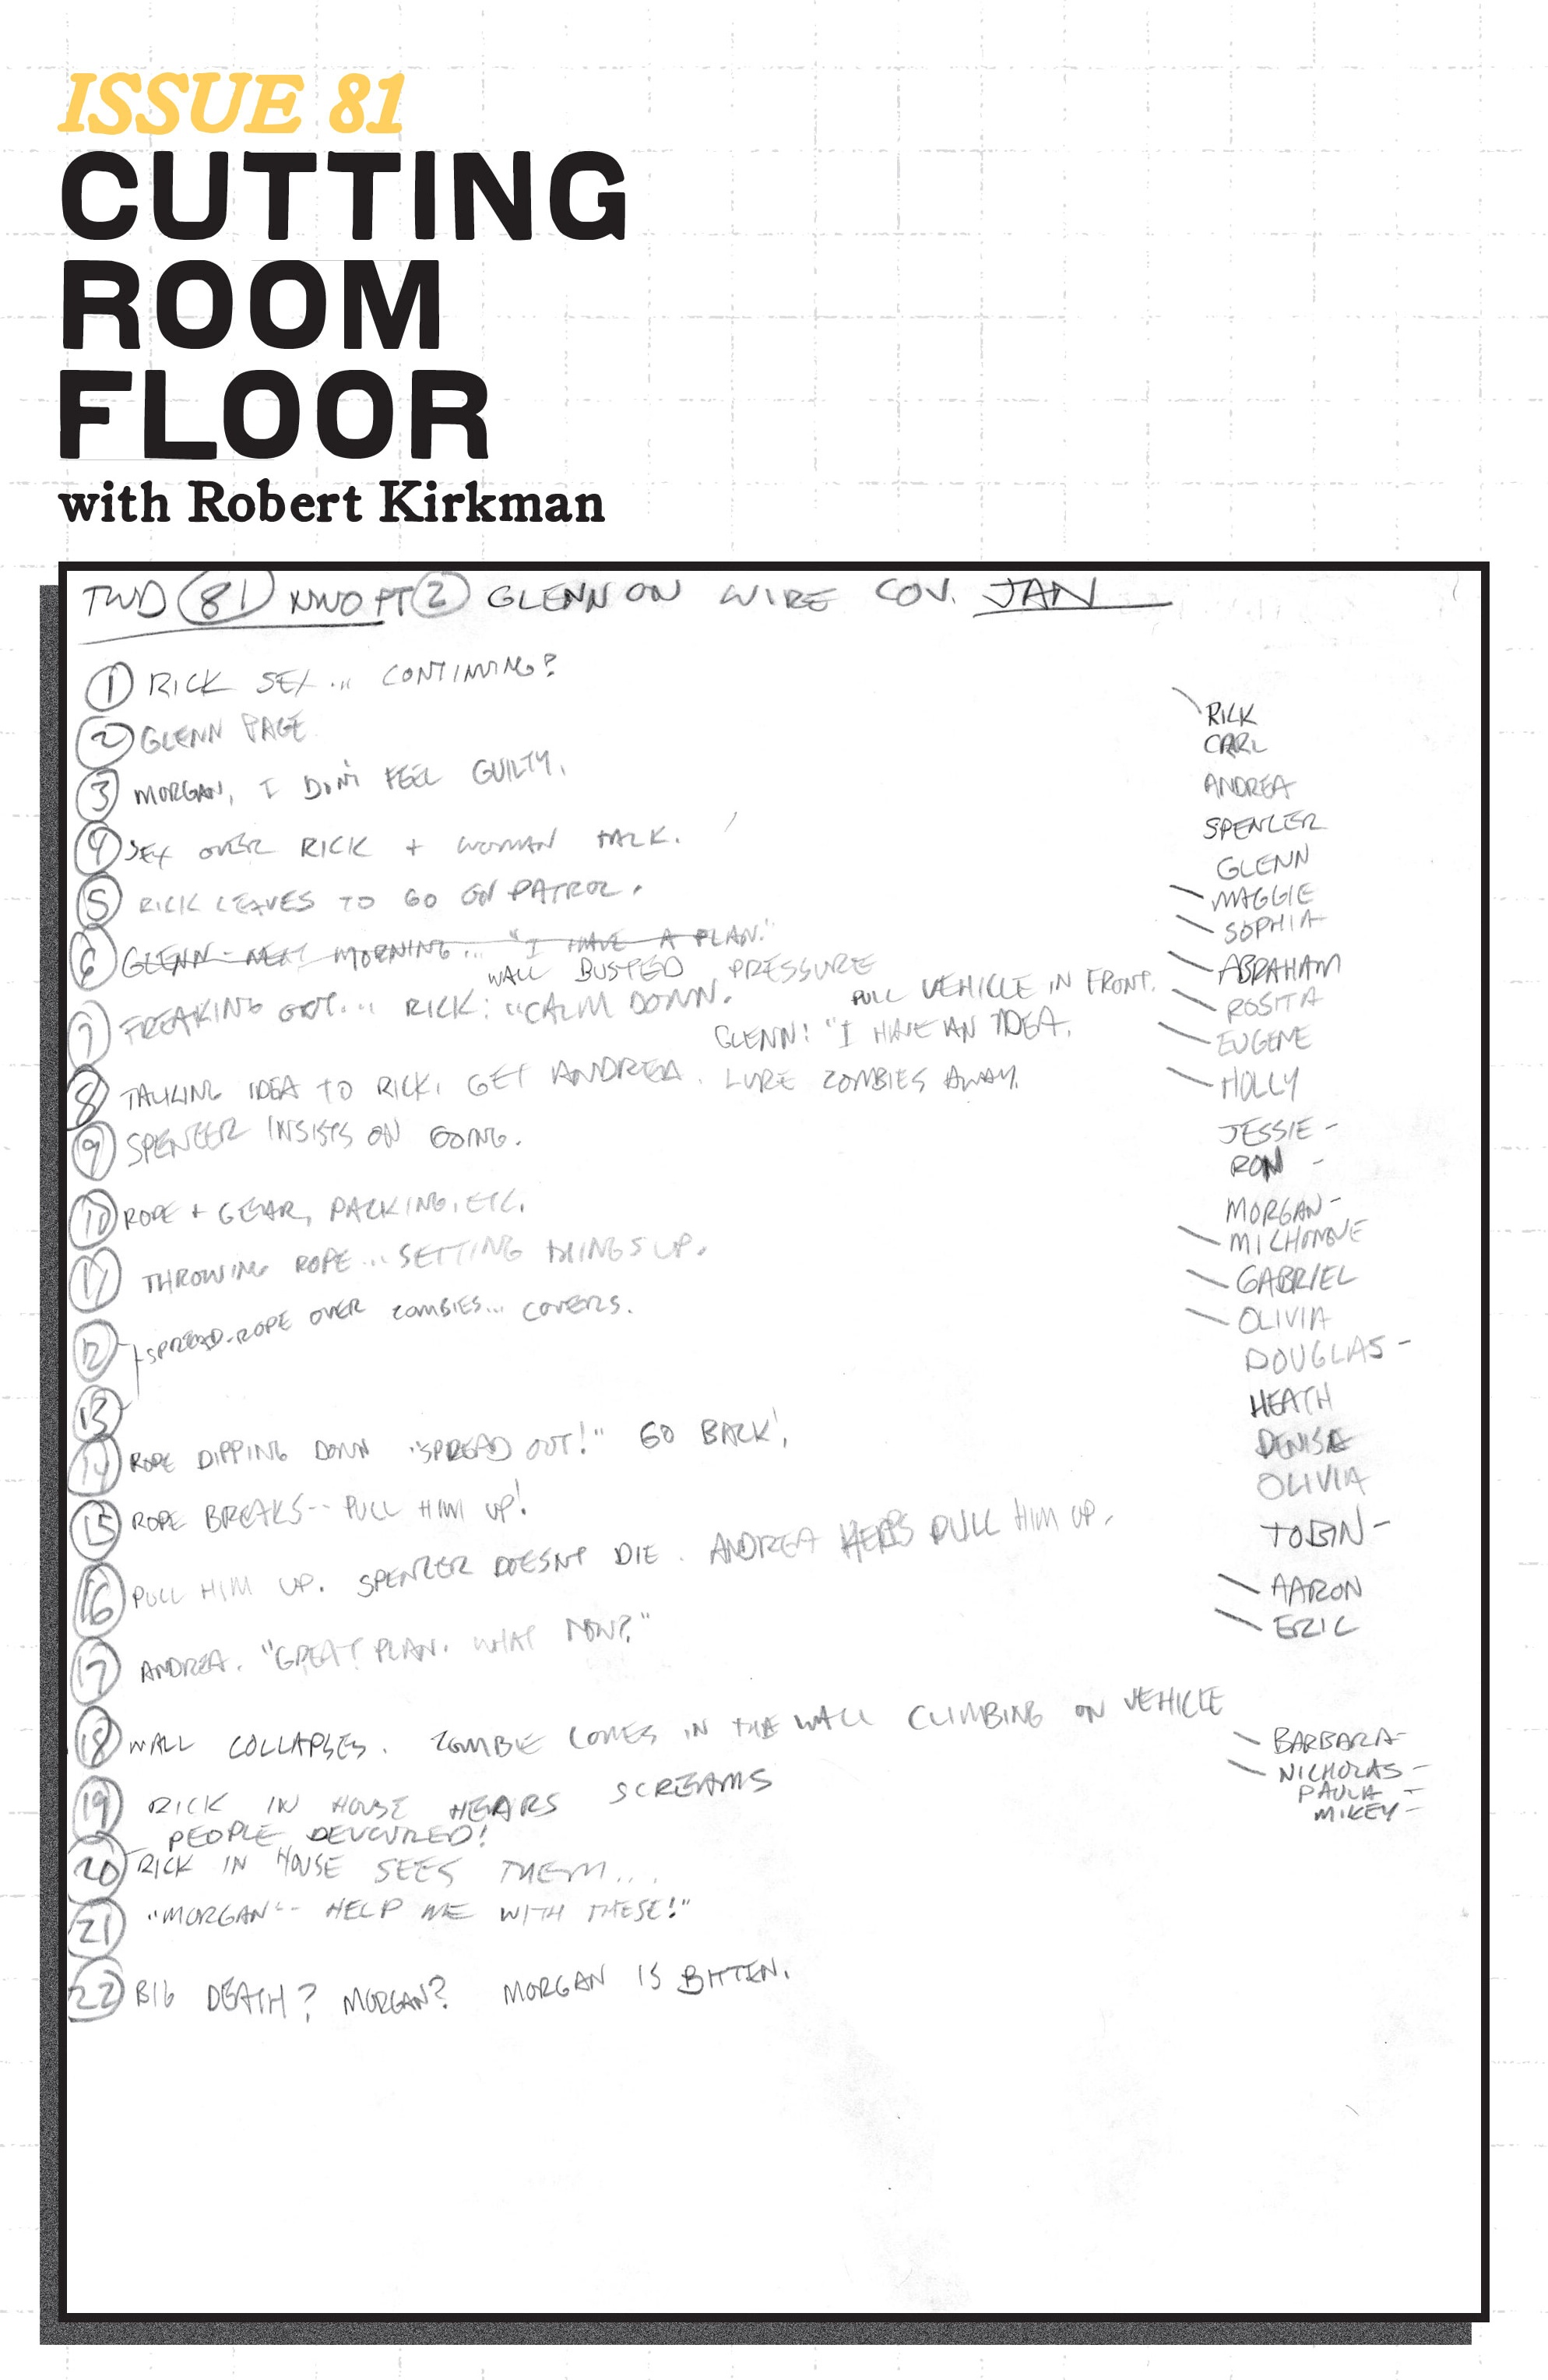 ISSUE 81
CUTTING
ROOM
FLOOR
with Robert Kirkman
TWD 81 NWO PT 2 GLENN ON WIRE COV. JAN
1 RICK SEX... CONTINUING?
2 GLENN PAGE
3 MORGAN, I DON'T FEEL GUILTY.
4 SEX OVER RICK + WOMAN TALK.
5 RICK LEAVES TO GO ON PATROL.
6 GLENN - NEXT MORNING... "I HAVE A PLAN."
WALL BUSTED PRESSURE
7 FREAKING OUT... RICK: "CALM DOWN. PULL VEHICLE IN FRONT.
GLENN: "I HAVE AN IDEA.
8 TALKING IDEA TO RICK. GET ANDREA. LURE ZOMBIES AWAY.
9 SPENCER INSISTS ON GOING.
10 ROPE + GEAR, PACKING, ETC.
11 THROWING ROPE... SETTING THINGS UP.
12 SPREAD-ROPE OVER ZOMBIES... COVERS.
13
14 ROPE DIPPING DOWN "SPREAD OUT!" GO BACK!
15 ROPE BREAKS-- PULL HIM UP!
16 PULL HIM UP. SPENCER DOESNT DIE. ANDREA HELPS PULL HIM UP.
17 ANDREA. "GREAT PLAN. WHAT NOW?"
18 WALL COLLAPSES. ZOMBIE COMES IN THE WALL CLIMBING ON VEHICLE
19 RICK IN HOUSE HEARS SCREAMS
PEOPLE DEVOURED!
20 RICK IN HOUSE SEES THEM...
21 "MORGAN-- HELP ME WITH THESE!"
22 BIG DEATH? MORGAN? MORGAN IS BITTEN.
RICK
CARL
ANDREA
SPENCER
GLENN
MAGGIE
SOPHIA
ABRAHAM
ROSITA
EUGENE
HOLLY
JESSIE -
RON -
MORGAN -
MICHONNE
GABRIEL
OLIVIA
DOUGLAS -
HEATH
DENISE
OLIVIA
TOBIN -
AARON
ERIC
BARBARA -
NICHOLAS -
PAULA -
MIKEY -